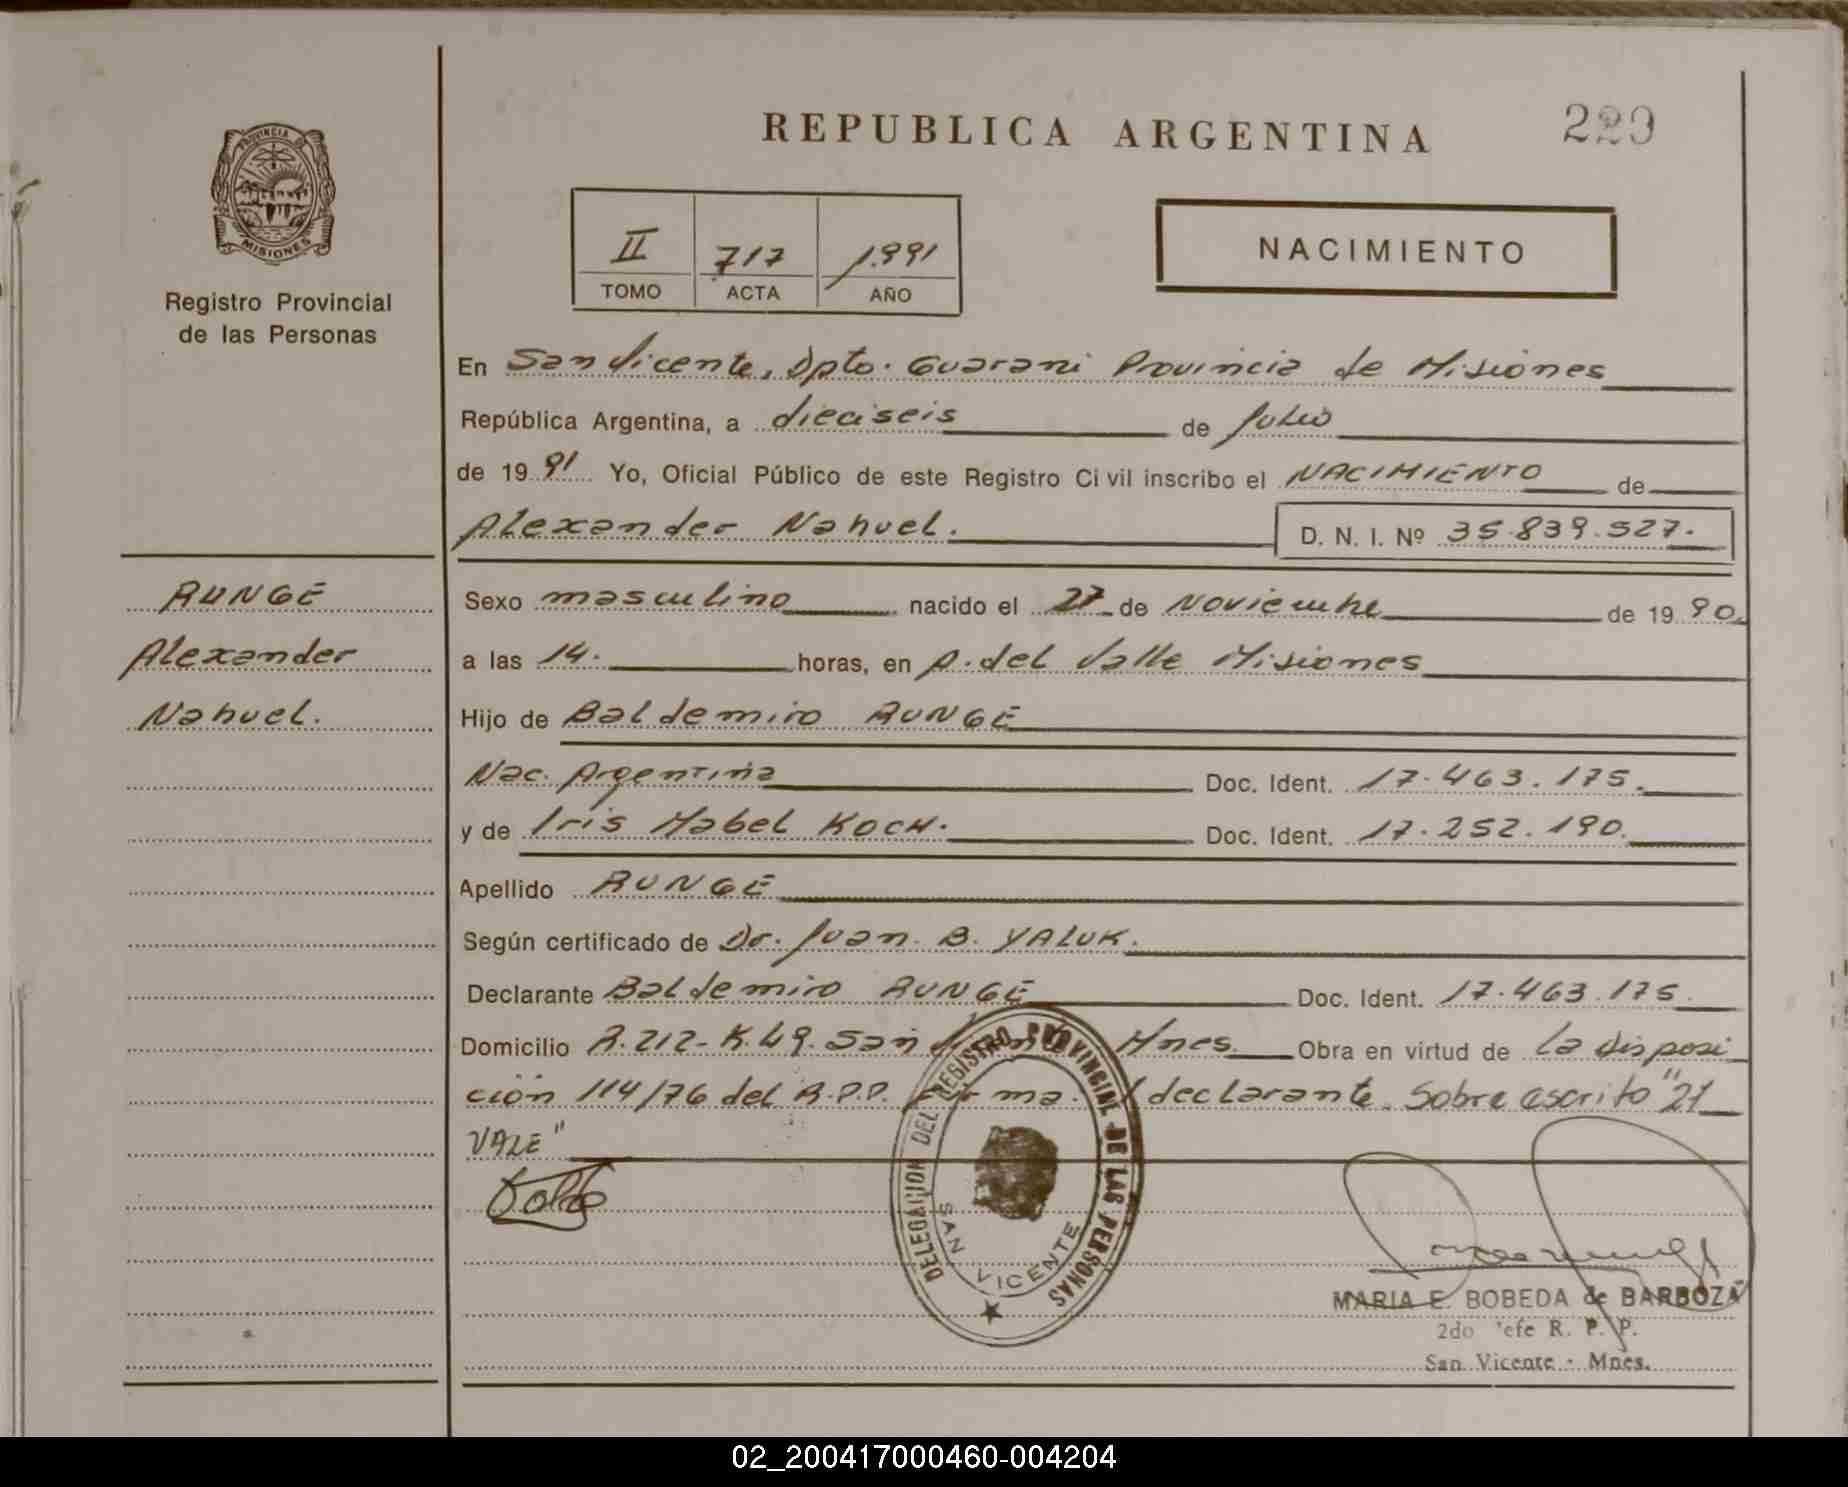 REPUBLICA ARGENTINA
229
PROVINCIA D
MISIONES
Registro Provincial
de las Personas
II 717 1.991
TOMO ACTA AÑO
NACIMIENTO
En San Vicente, Dpto. Guarani Provincia de Misiones
República Argentina, a dieciseis de Julio
de 19 91 Yo, Oficial Público de este Registro Civil inscribo el NACIMIENTO de
Alexander Nahuel. D. N. I. Nº 35.839.527.
RUNGE
Alexander
Nahuel.
Sexo masculino nacido el de Noviembre de 19 90.
a las 14. horas, en A. del Valle Misiones
Hijo de Baldemiro RUNGE
Nac. Argentina Doc. Ident. 17.463.175.
y de Iris Mabel KOCH. Doc. Ident. 17.252.190.
Apellido RUNGE
Según certificado de Dr. Juan B. YALUK.
Declarante Baldemiro RUNGE Doc. Ident. 17.463.175
Domicilio R.212-K.49. San Mnes. Obra en virtud de la disposi
ción 114/76 del R.P.P. Firma. declarante. Sobre escrito "21
VALE"
DELEGACION DEL REGISTRO PROVINCIAL DE LAS PERSONAS
SAN VICENTE
MARIA E. BOBEDA de BARBOZA
2do Jefe R. P. P.
San Vicente - Mnes.
02_200417000460-004204